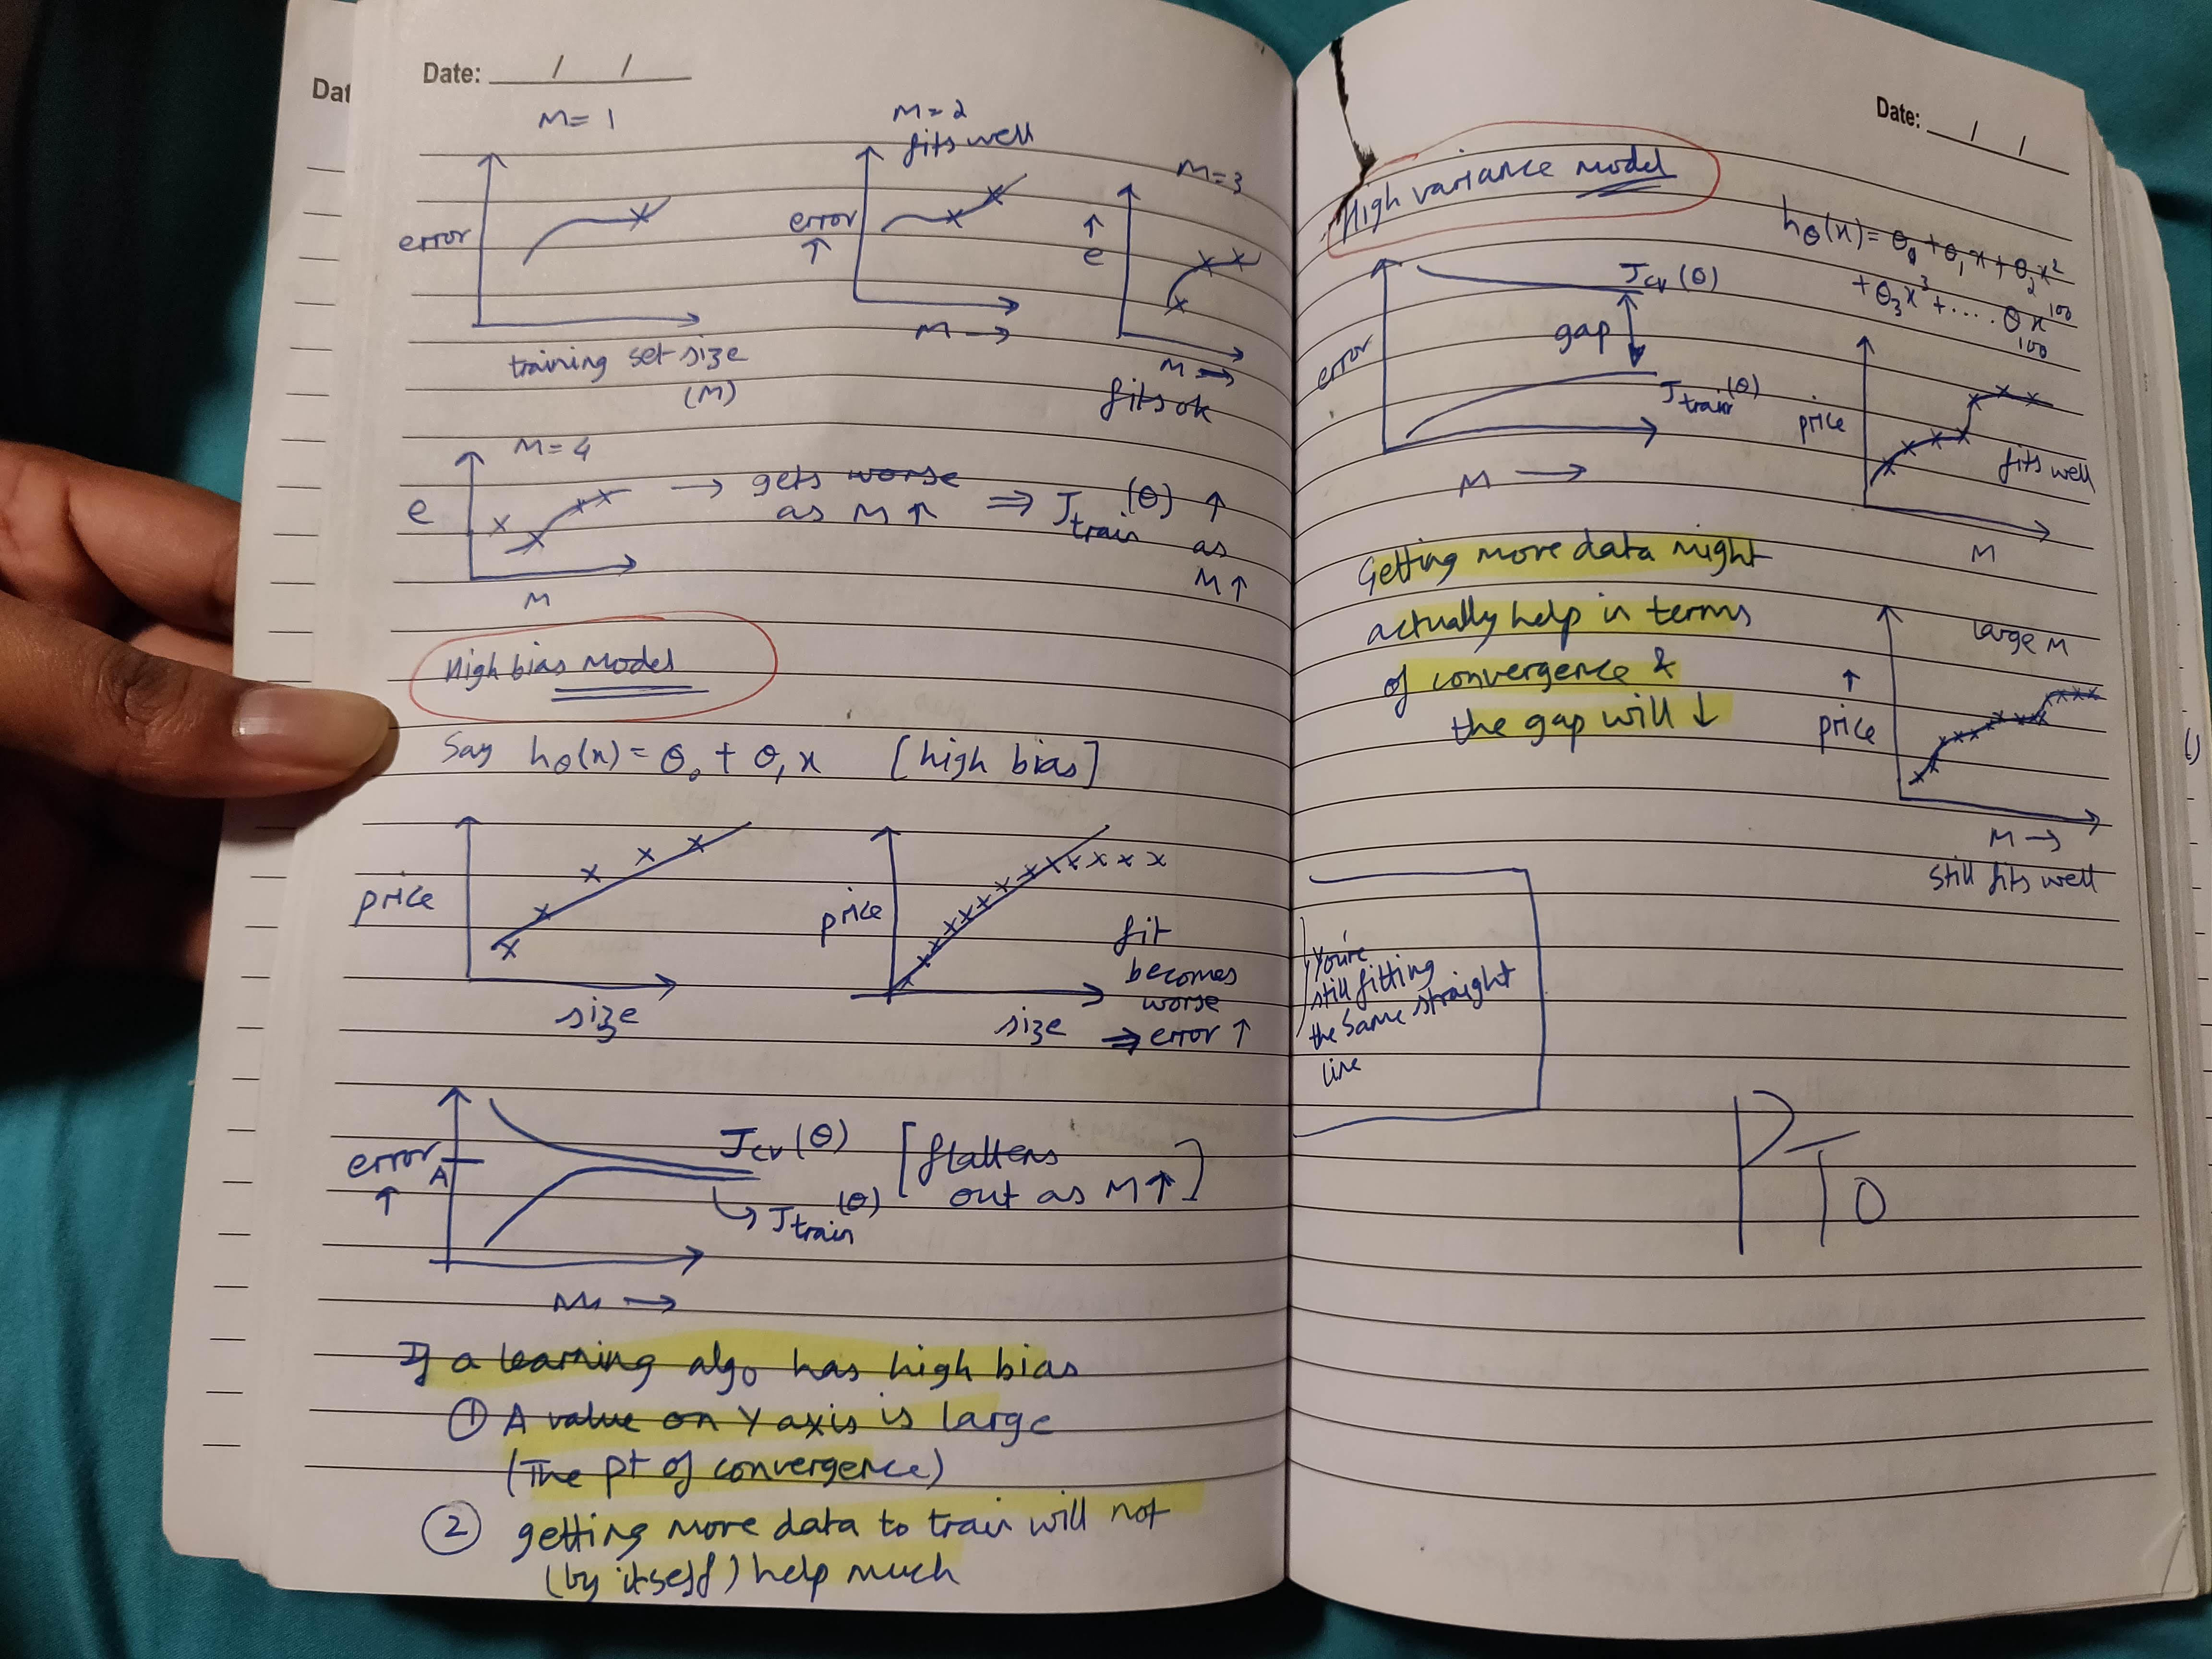 Dat
Date: / /
M = 1
error
training set size
(M)
M = 2
fits well
error
↑
M →
M = 3
↑
e
M →
fits ok
M = 4
e
M
→ gets worse
as M ↑
⇒ J train (θ) ↑
as
M ↑
High bias model
Say hθ(x) = θ₀ + θ₁x [high bias]
price
size
price
size
fit
becomes
worse
⇒ error ↑
error
↑
A
Jcv(θ)
Jtrain(θ)
[flattens
out as M↑]
M →
If a learning algo has high bias
① A value on Y axis is large
(The pt of convergence)
② getting more data to train will not
(by itself) help much
Date: / /
High variance model
hθ(x) = θ₀ + θ₁x + θ₂x²
+ θ₃x³ + .... θ₁₀₀x¹⁰⁰
error
Jcv(θ)
gap
Jtrain(θ)
M →
price
fits well
M
Getting more data might
actually help in terms
of convergence &
the gap will ↓
large M
↑
price
M →
still fits well
You're
still fitting
the same straight
line
PTO